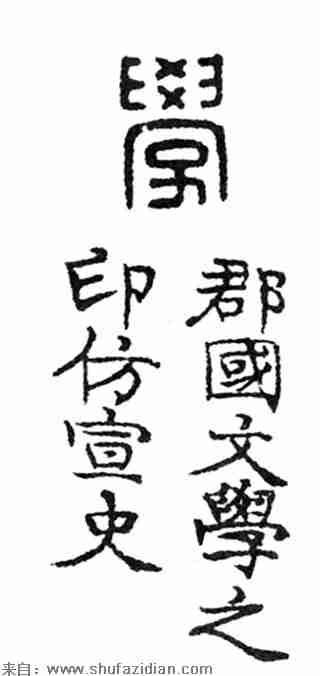 學
郡國文學之
印仿宣史
来自：www.shufazidian.com